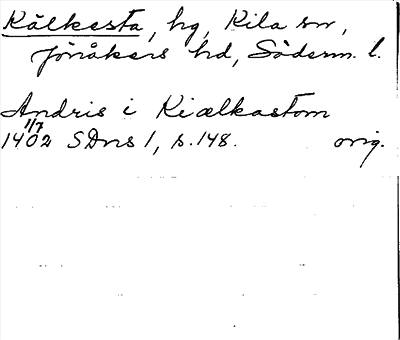 Kälkesta, hg, Kila sn,
Jönåkers hd, Söderm. l.
Andris i Kiælkastom
11/7
1402 SDns 1, s. 148. orig.